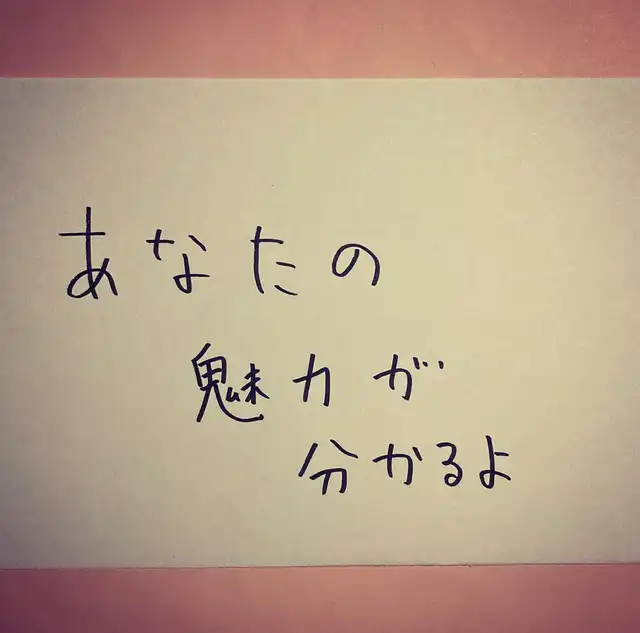 あなたの
魅力が
分かるよ